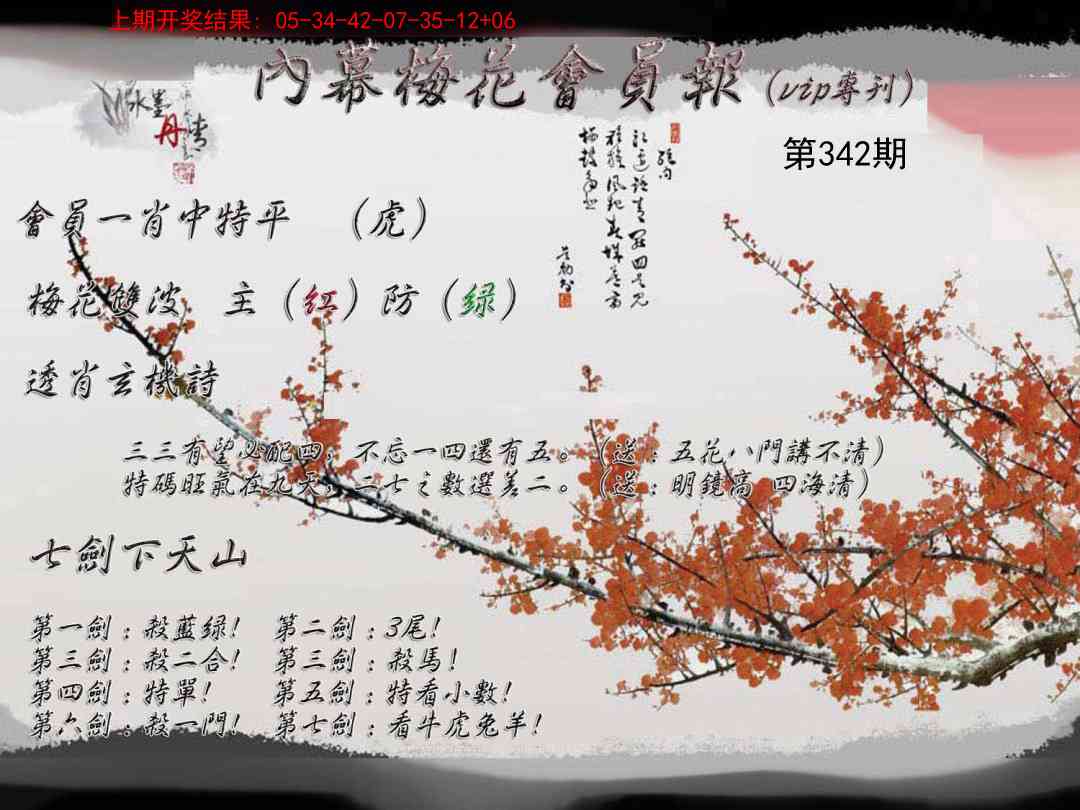 上期开奖结果: 05-34-42-07-35-12+06
內幕梅花會員報(vip專刊)
水墨
丹清
第342期
會員一肖中特平 (虎)
梅花雙波 主(红)防(绿)
透肖玄機詩
三三有望必配四，不忘一四還有五。(送:五花八門講不清)
特碼旺氣在九天，二七之數選差二。(送:明鏡高 四海清)
七劍下天山
第一劍:殺藍绿! 第二劍:3尾!
第三劍:殺二合! 第三劍:殺馬!
第四劍:特單! 第五劍:特看小數!
第六劍:殺一門! 第七劍:看牛虎兔羊!